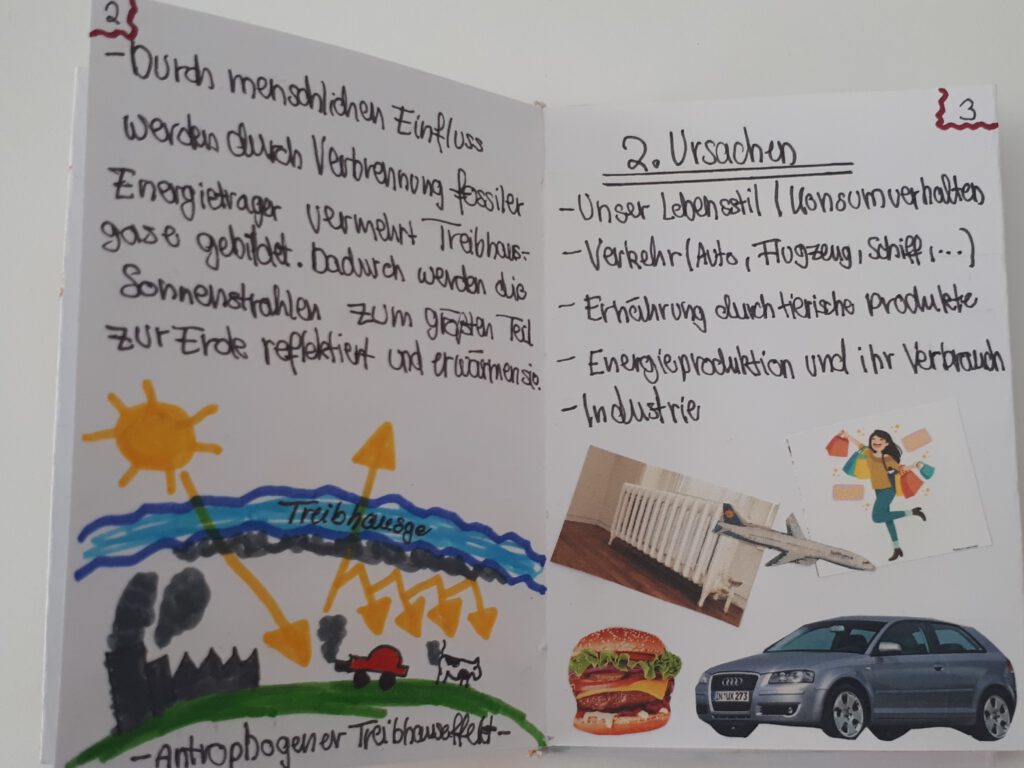 2
- Durch menschlichen Einfluss
werden durch Verbrennung fossiler
Energieträger vermehrt Treibhaus-
gase gebildet. Dadurch werden die
Sonnenstrahlen zum größten Teil
zur Erde reflektiert und erwärmen sie.
Treibhausge
- Antropbogener Treibhauseffekt -
3
2. Ursachen
- Unser Lebensstil / Konsumverhalten
- Verkehr (Auto, Flugzeug, Schiff, ...)
- Ernährung durch tierische Produkte
- Energieproduktion und ihr Verbrauch
- Industrie
IN UX 273